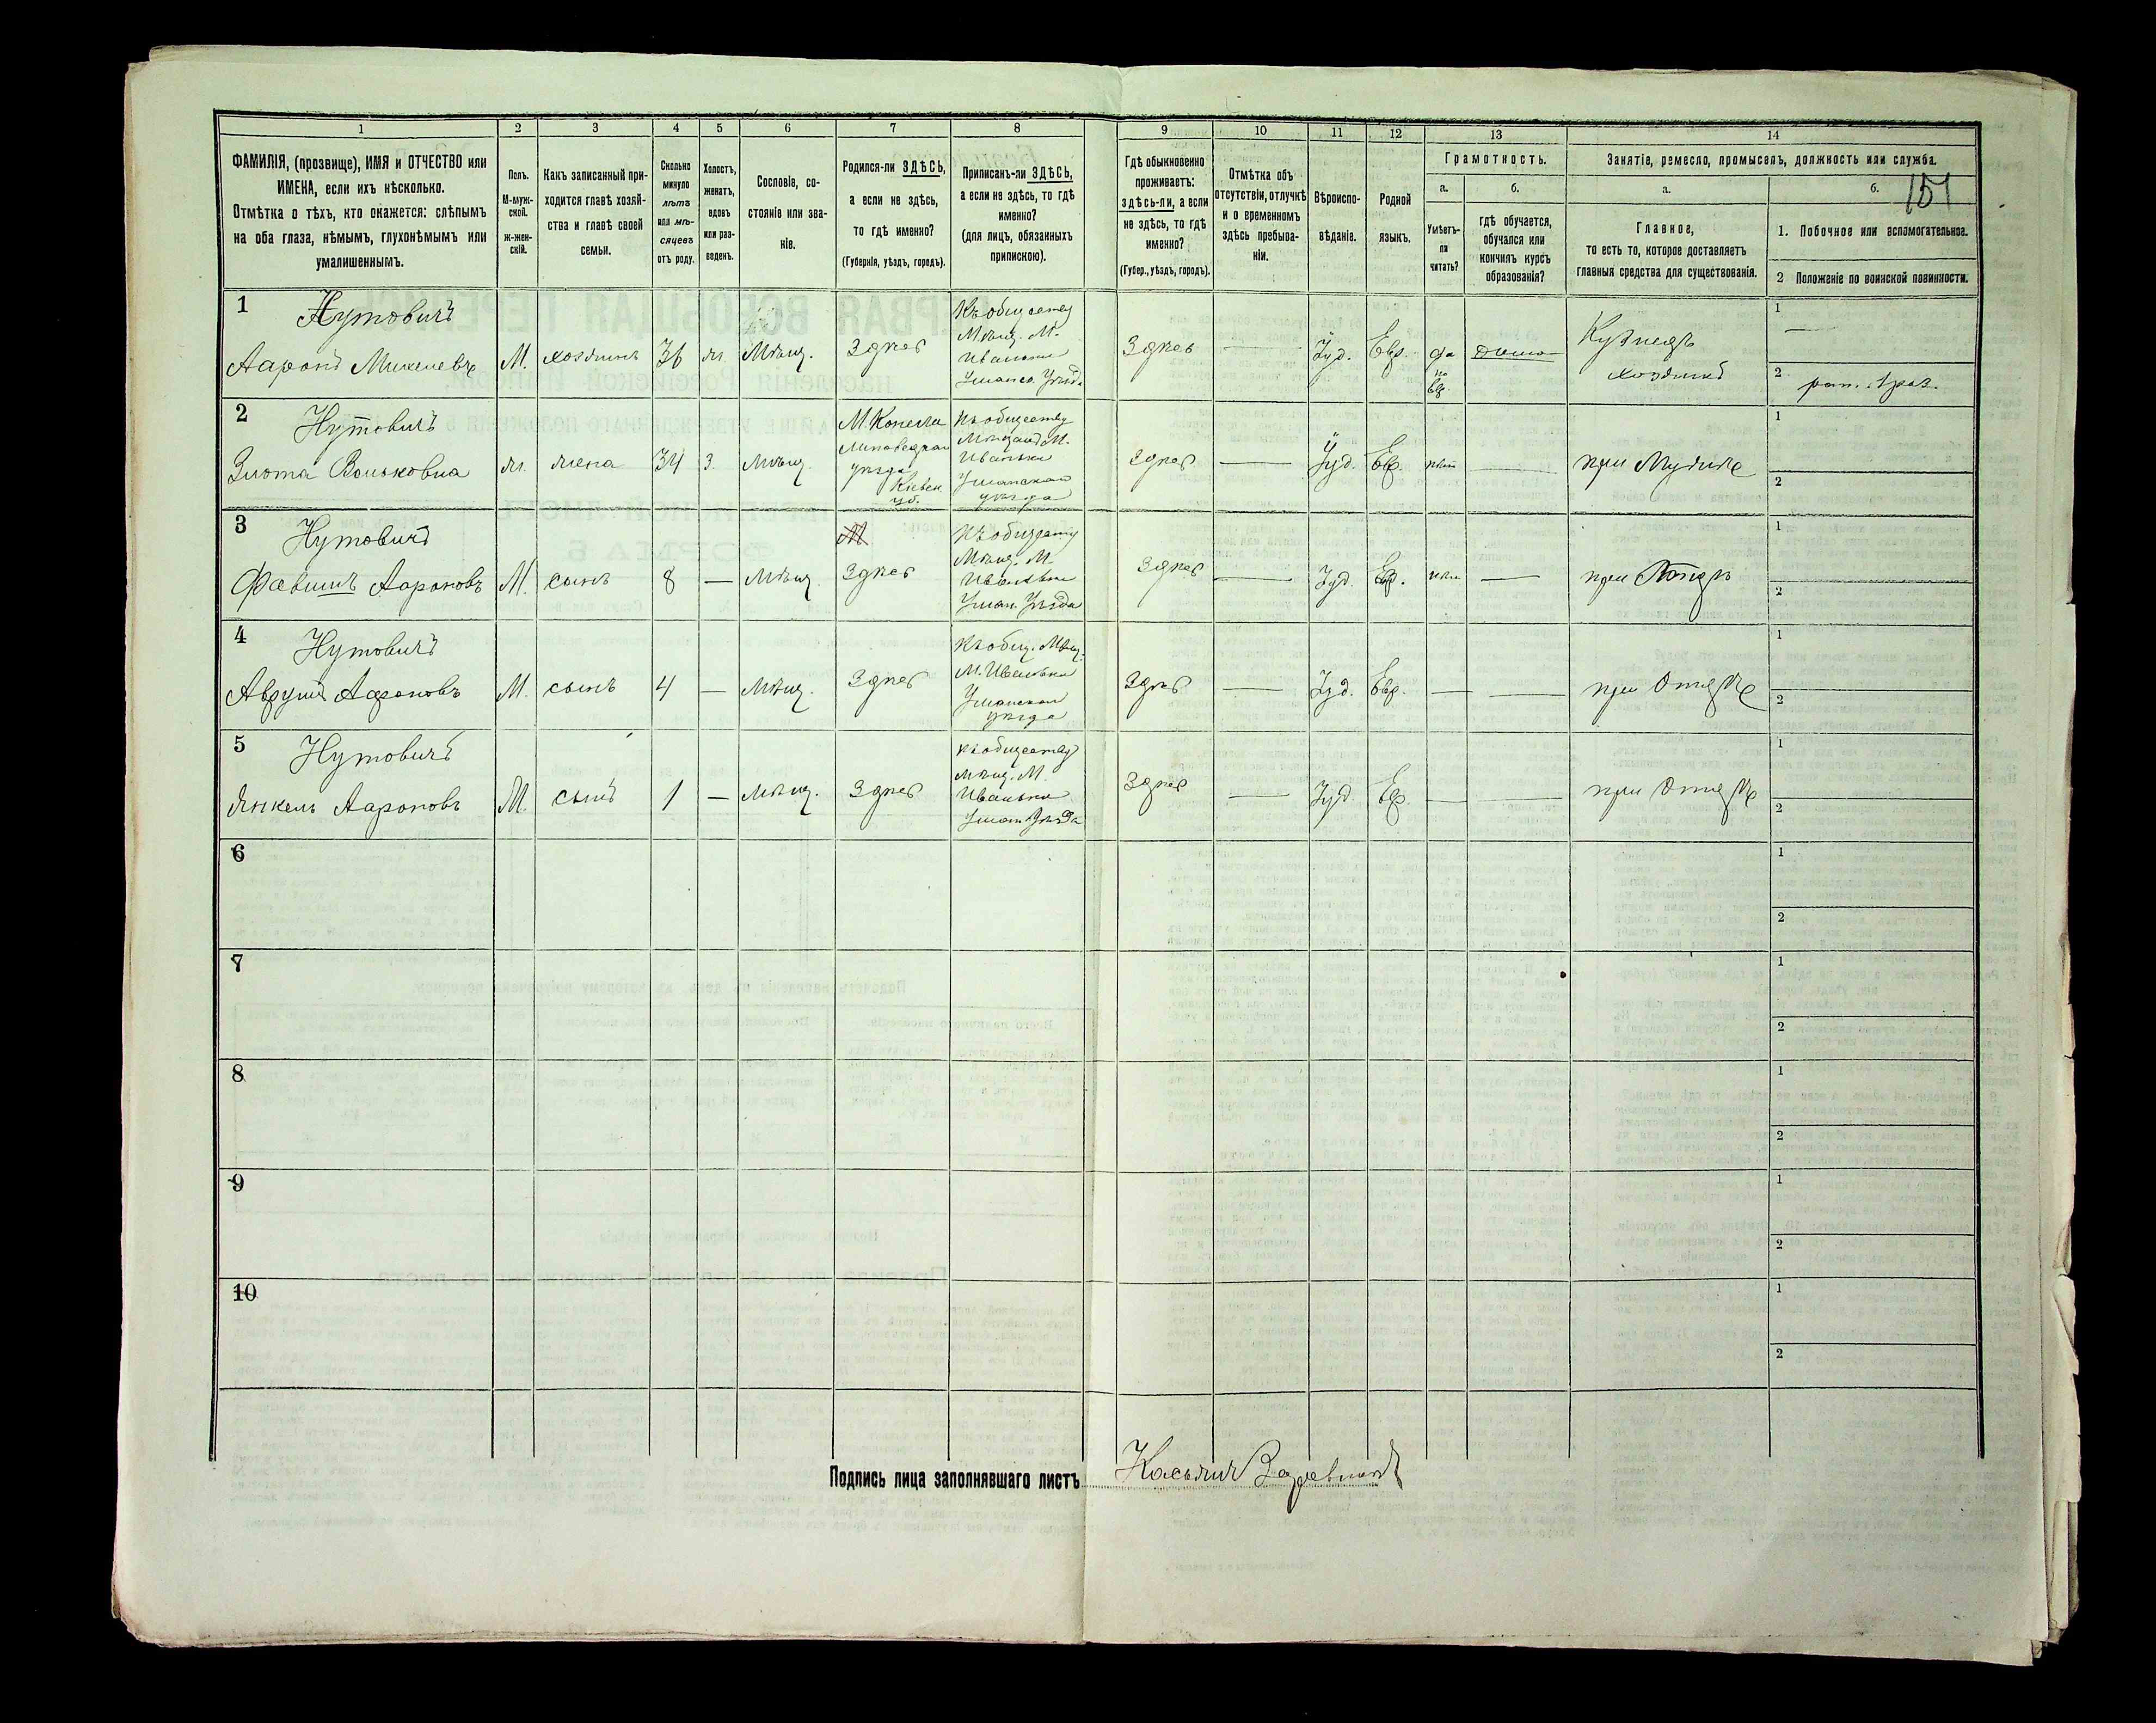 1 2 3 4 5 6 7 8 9 10 11 12 13 14
ФАМИЛІЯ, (прозвище), ИМЯ и ОТЧЕСТВО или
ИМЕНА, если ихъ нѣсколько.
Отмѣтка о тѣхъ, кто окажется: слѣпымъ
на оба глаза, нѣмымъ, глухонѣмымъ или
умалишеннымъ.
Полъ.
М-муж-
ской.
Ж-жен-
скій.
Какъ записанный при-
ходится главѣ хозяй-
ства и главѣ своей
семьи.
Сколько
минуло
лѣтъ
или мѣ-
сяцевъ
отъ роду.
Холостъ,
женатъ,
вдовъ
или раз-
веденъ.
Сословіе, со-
стояніе или зва-
ніе.
Родился-ли ЗДѢСЬ,
а если не здѣсь,
то гдѣ именно?
(Губернія, уѣздъ, городъ).
Приписанъ-ли ЗДѢСЬ,
а если не здѣсь, то гдѣ
именно?
(для лицъ, обязанныхъ
припискою).
Гдѣ обыкновенно
проживаетъ:
здѣсь-ли, а если
не здѣсь, то гдѣ
именно?
(Губер., уѣздъ, городъ).
Отмѣтка объ
отсутствіи, отлучкѣ
и о временномъ
здѣсь пребыва-
ніи.
Вѣроиспо-
вѣданіе.
Родной
языкъ.
Грамотность.
а.
Умѣетъ-
ли
читать?
б.
гдѣ обучается,
обучался или
кончилъ курсъ
образованія?
Занятіе, ремесло, промыселъ, должность или служба.
а.
Главное,
то есть то, которое доставляетъ
главныя средства для существованія.
б.
151
1. Побочное или вспомогательное.
2 Положеніе по воинской повинности.
1
Нутовичъ
Ааронъ
М.
хозяинъ
36
ж.
Мѣщ.
Здѣсь
Къ обществу
Мѣщ. М.
Иваньки
Уманск. Уѣзда
Здѣсь
Іуд.
Евр.
да
по
Евр.
дома
Кузнецъ
хозяинъ
1
2
2
Нутовичъ
Злота Вольковна
ж.
жена
34
З.
Мѣщ.
М. Конела
Липовецкаго
уѣзда
Кіевск.
губ.
Къ обществу
Мѣщанъ М.
Иваньки
Уманскаго
уѣзда
Здѣсь
Іуд.
Евр.
нѣтъ
при Мужѣ
1
2
3
Нутовичъ
Фавишъ Аароновъ
М.
сынъ
8
Мѣщ.
Здѣсь
Къ обществу
Мѣщ. М
Иваньки
Уман. Уѣзда
Здѣсь
Іуд.
Евр.
нѣтъ
при Отцѣ
1
2
4
Нутовичъ
Аврумъ Аароновъ
М.
сынъ
4
Мѣщ.
Здѣсь
Къ общ. Мѣщ.
М. Иваньки
Уманскаго
уѣзда
Здѣсь
Іуд.
Евр.
при Отцѣ
1
2
5
Нутовичъ
Янкель Аароновъ
М.
сынъ
1
Мѣщ.
Здѣсь
Къ обществу
Мѣщ. М.
Иваньки
Уман. Уѣзда
Здѣсь
Іуд
Евр.
при Отцѣ
1
2
6
1
2
7
1
2
8
1
2
9
1
2
10
1
2
Подпись лица заполнявшаго листъ